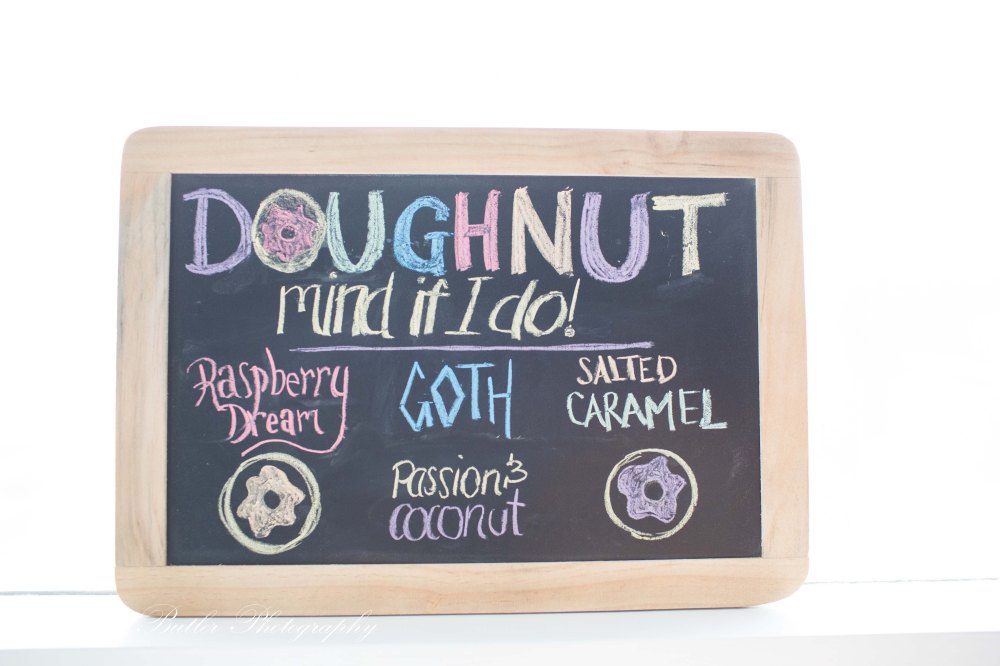 DOUGHNUT
mind if I do!
Raspberry
Dream
GOTH
SALTED
CARAMEL
Passion &
coconut
Butler Photography